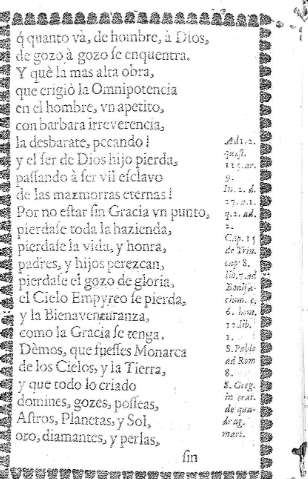 q̃ quanto và, de hombre, à Dios,
de gozo à gozo se enquentra.
Y què la mas alta obra,
que erigiò la Omnipotencia
en el hombre, vn apetito,
con barbara irreverencia,
la desbarate, pecando!
y el ser de Dios hijo pierda,
passando à ser vil esclavo
de las mazmorras eternas!
Por no estar sin Gracia vn punto,
pierdase toda la hazienda,
pierdase la vida, y honra,
padres, y hijos perezcan,
pierdase el gozo de gloria,
el Cielo Empyreo se pierda,
y la Bienaventuranza,
como la Gracia se tenga.
Dèmos, que fuesses Monarca
de los Cielos, y la Tierra,
y que todo lo criado
domines, gozes, posseas,
Astros, Planetas, y Sol,
oro, diamantes, y perlas,
sin
Ad 1. 2.
quæst.
113. ar.
9.
In. 2. d.
27. a. 1.
q. 2. ad.
2.
Cap. 15
de Trin.
cap. 8.
lib. 7. ad
6. hom.
12. lib.
1.
S. Pablo
ad Rom
8.
S. Greg.
in orat.
de qua-
drag.